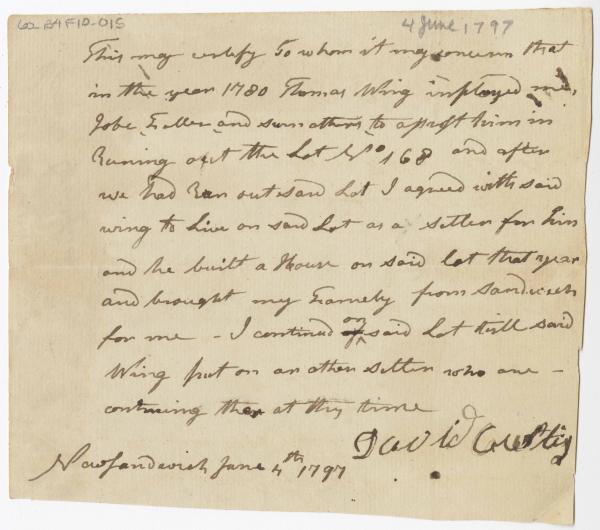 62 B4F10-015
4 June 1797
This may certify To whom it may concern that
in the year 1780 Thomas Wing imployed me,
Jobe Fuller and sum others to assist him in
Runing out the Lot No 168 and after
we had Ran out said Lot I agreed with said
wing to Live on said Lot as a setler for him
and he built a House on said lot that year
and brought my Fameby from sandwich
for me - I continued on said Lot till said
Wing put on an other setler who are -
contnuing ther at this time
David Curtis
Newsandwich June 4th 1797